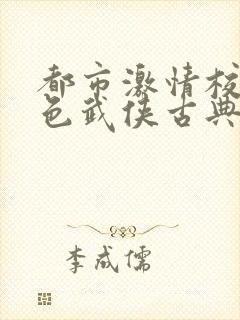 都市激情校
色武侠古典
李成儒